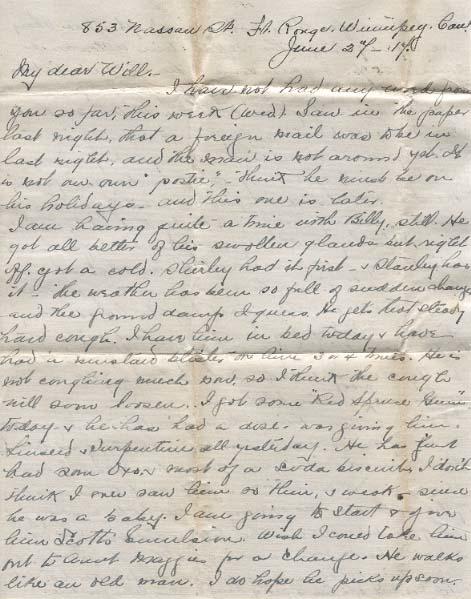 853 Nassau St. Ft. Rouge. Winnipeg. Can.
June 27 - 17.
My dear Will.-
I have not had any word from
you so far, this week (Wed) I saw in the paper
last night, that a foreign mail was to be in
last night, and the man is not around yet. It
is not our own "postie". I think he must be on
his holidays and this one is later.
I am having quite a time with Billy, still. He
got all better of his swollen glands but right
off got a cold. Shirley had it first - & Stanley has
it - the weather has been so full of sudden changes
and the ground damp I guess. He gets that steady
hard cough. I have him in bed today & have
had a mustard plaster on him 3 or 4 times. He is
not coughing much now, so I think the cough
will soon loosen. I got some "Red Spruce Gum"
today & he has had a dose. was giving him
Linseed & Turpentine all yesterday. He has just
had some Oxo & most of a soda biscuit. I don't
think I ever saw him so thin, & weak - since
he was a baby. I am going to start & give
him Scott's emulsion. Wish I could take him
out to Aunt Maggies for a change. He walks
like an old man. I do hope he picks up soon.